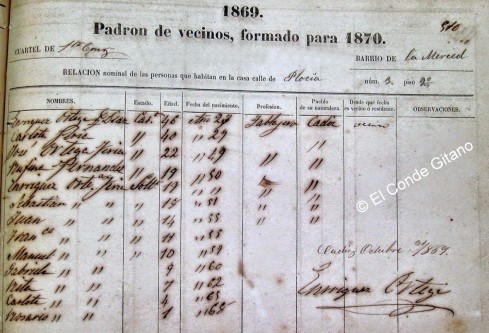 1869.
510
Padron de vecinos, formado para 1870.
CUARTEL DE Sta Cruz
BARRIO DE La Merced
RELACION nominal de las personas que habitan en la casa calle de Plocia núm. 3 piso 2º
NOMBRES. Estado. Edad. Fecha del nacimiento. Profesion. Pueblo de su naturaleza. Desde qué fecha es vecino ó residente. OBSERVACIONES.
Enrique Ortega Cas. 46 23 Cadiz
Carlota " 40 " 29 " "
José Ortega 22 " 49 " "
Rufina Fernandez 19 " 50
Enrique Ortega Solt. 17 " "
Sebastian " " " 15 "
Juan " " " 14 " 55 " "
Fran co " " " 11 "
Manuel " " " 10 " 59 "
Gabriela " " 9 " 60
Rita " " 7 " 62
Carlota " " 4 " 65
Rosario " " 1 " 68
Cadiz Octubre 1869.
Enrique Ortega
© El Conde Gitano